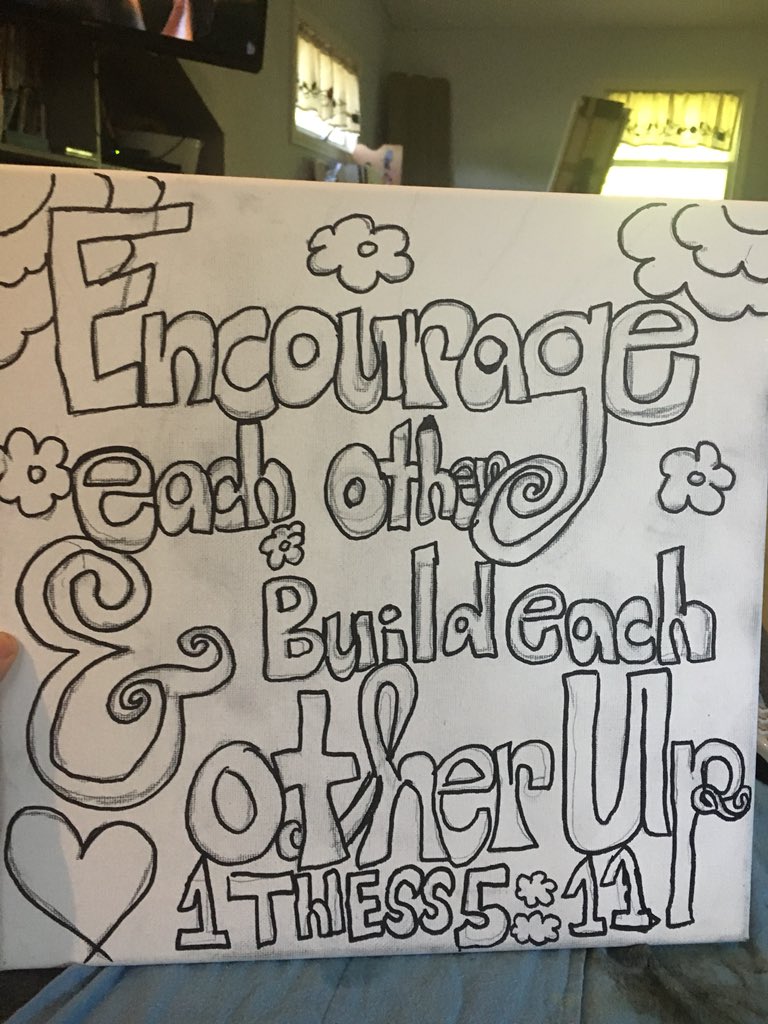 Encourage
each other
& Build each
other Up
1 THESS 5:11